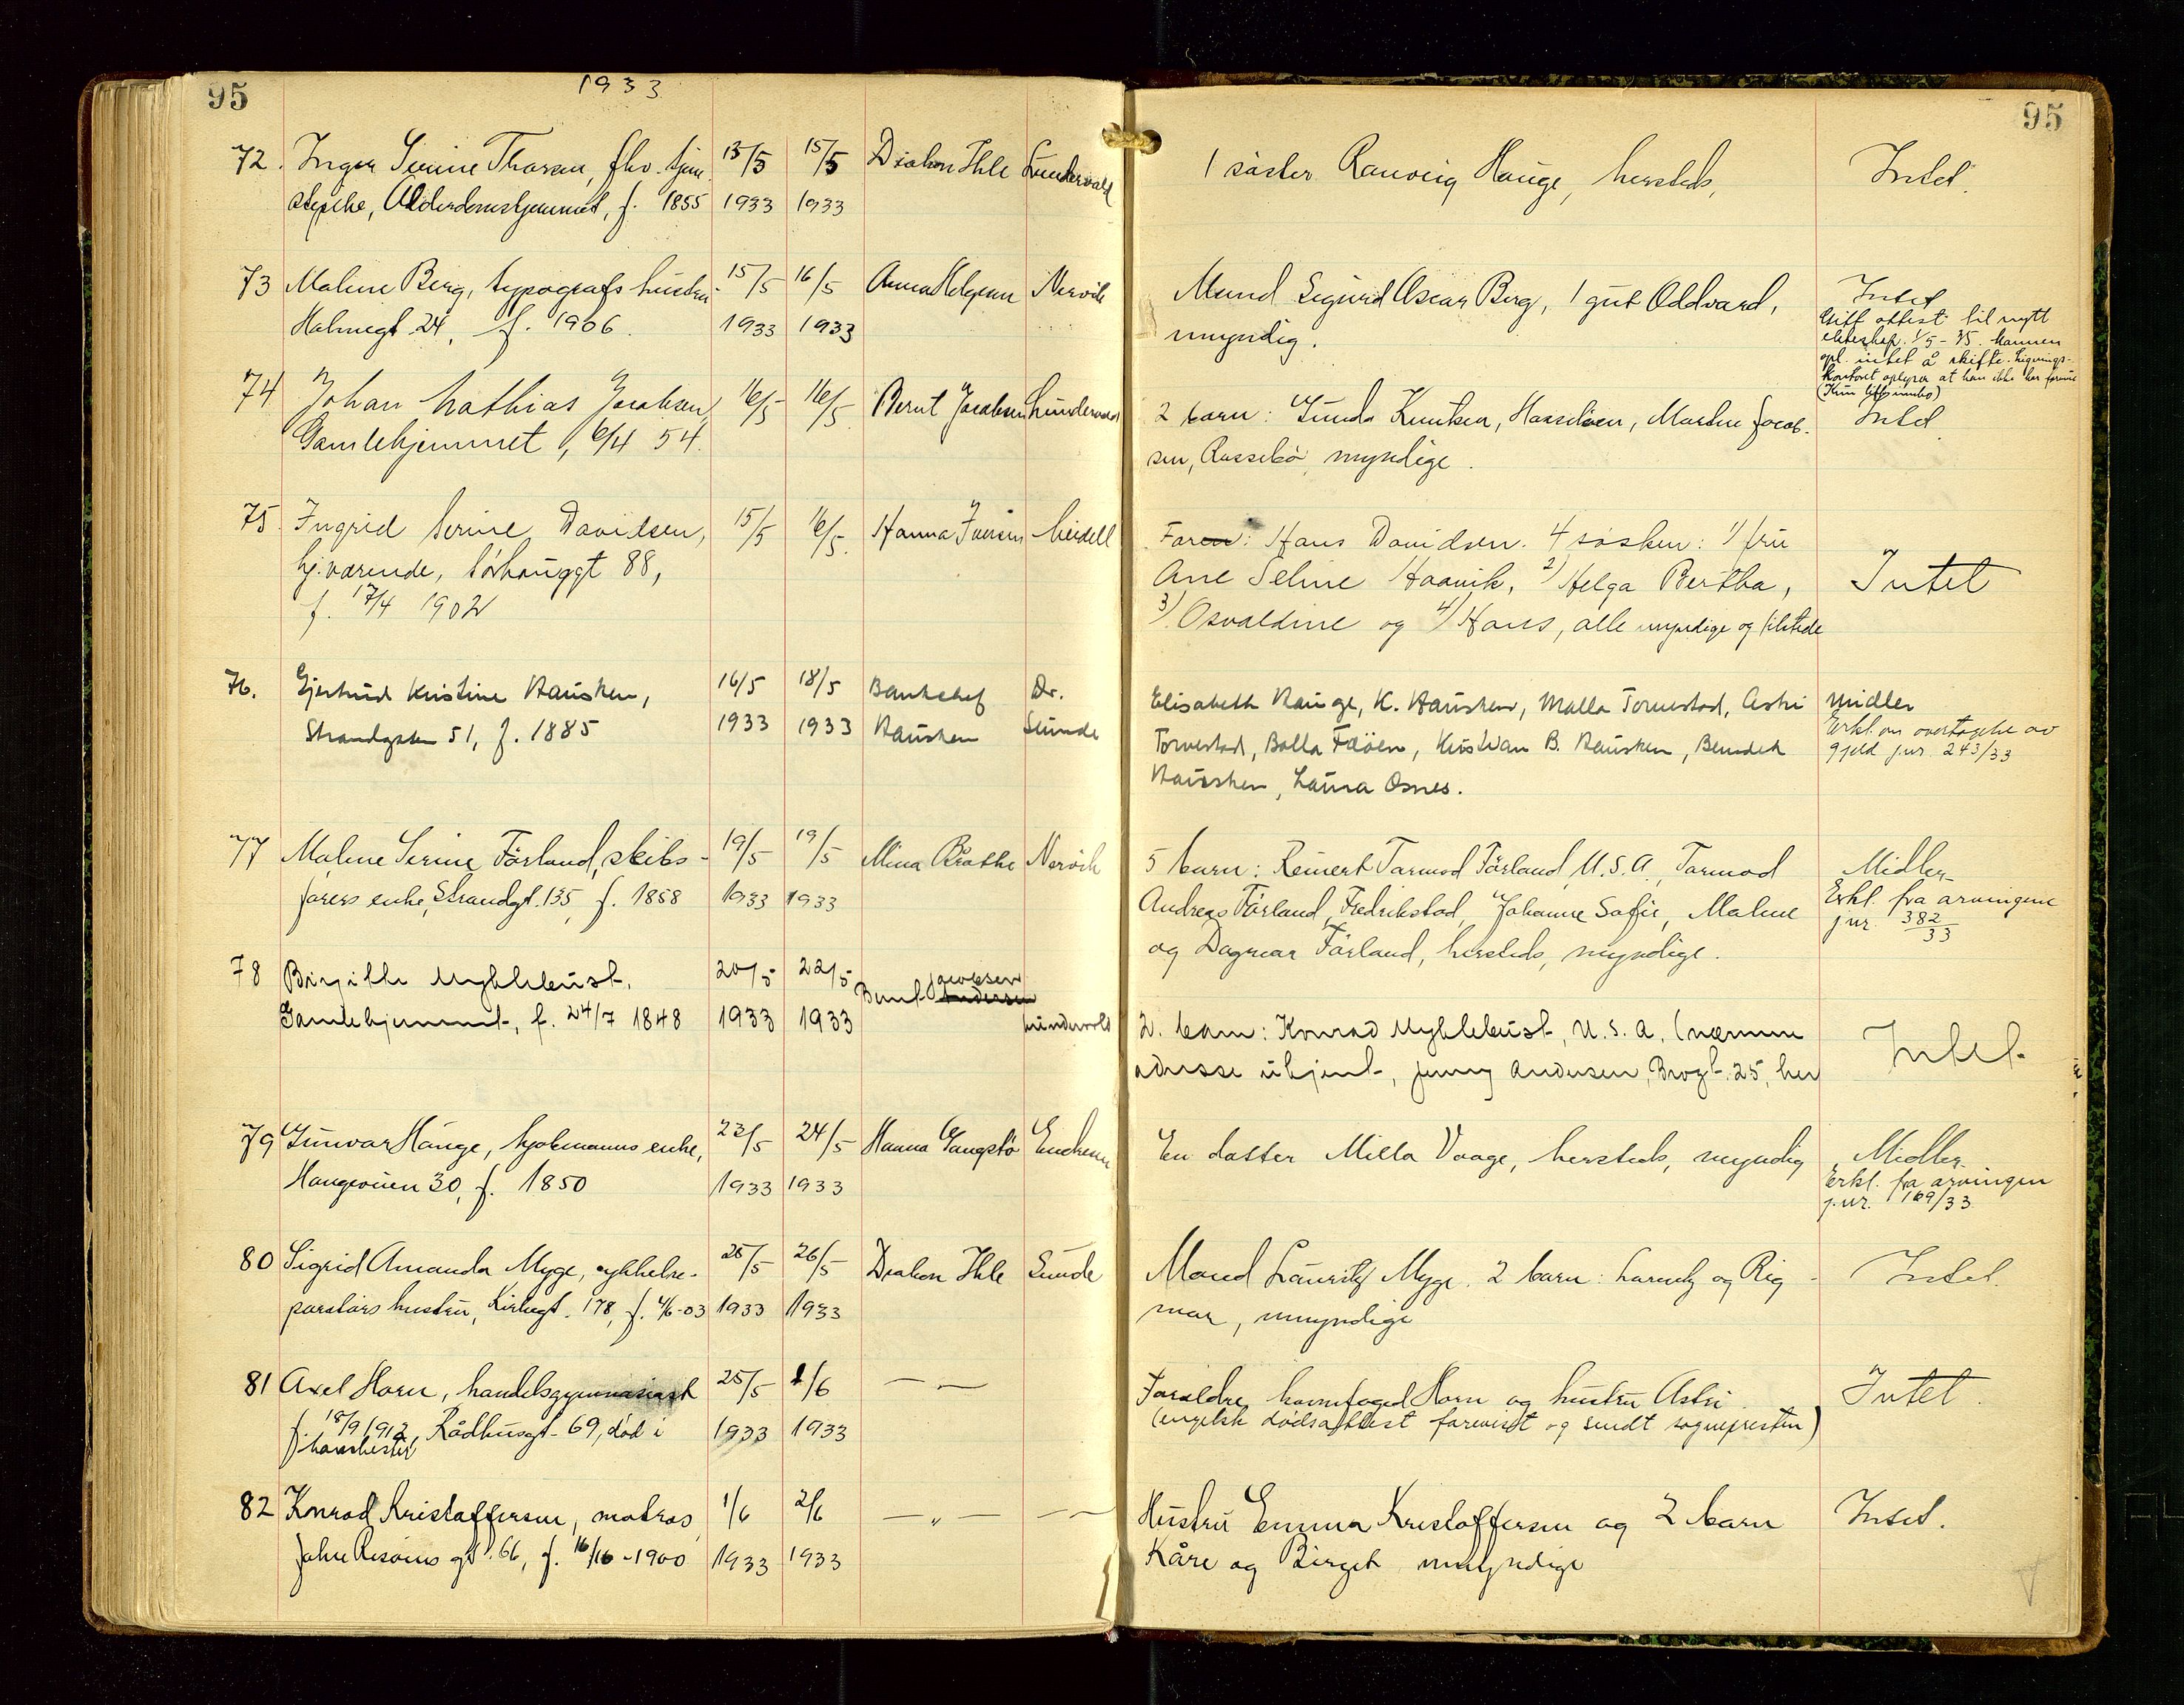 95
1933
72. Inger Serine Thorsen, fhv. tjene
Alderdomshjemmet, f. 1855
13/5 1933
15/5 1933
Diakon Ihle
Lundervold
73 Maline Berg, typografs hustru
24, f. 1906.
15/5 1933
16/5 1933
Anna Helgesen
Nervik
74 Johan Mathias Jacobsen,
Gamlehjemmet, 6/4 54.
16/5
16/5.
Bernt Jacobsen
Lundervold
75 Ingrid Serine Davidsen,
hj.værende, Sørhauggt 88,
f. 17/4 1902
15/5
16/5.
Hanna Iversen
Meidell
76. Gjertrud Kristine Hausken,
Strandgaten 51, f. 1885
16/5 1933
18/5 1933
Banksjef
Hausken
Dr.
Sunde
77 Maline Serine Førland, skibs-
førers enke, Strandgt. 135, f. 1858
19/5 1933
19/5 1933
Mina Bråthe
Nervik
78 Birgithe Myklebust,
Gamlehjemmet, f. 24/7 1848
20/5 1933
22/5 1933
Jacobsen
Bernt Andersen
Lundervold
79 Gunvor Hauge, enke,
Haugeveien 30, f. 1850
23/5 1933
24/5 1933
Hanna
80 Sigrid Amanda Myge, sykkelre-
paratørs hustru, Kirkegt. 178, f. 4/6-03
25/5 1933
26/5 1933
Diakon Ihle
Sunde
81 Axel Horn, handelsgymnasiast
f. 18/9 1912, Rådhusgt. 69, død i
Manchester
25/5 1933
1/6 1933
— „ —
82 Konrad Kristoffersen, matros
gt. 66, f. 16/10-1900
1/6 1933
2/6 1933
— „ —
— „ —
95
1 søster Ranveig Hauge, hersteds,
Intet.
Mand Sigurd Oscar Berg, 1 gut Oddvard,
umyndig.
Intet
Giff. attest til nytt
ekteskap 1/5-35. Mannen
opl. intet å skifte. Lignings-
kontoret oplyser at han ikke har formue
(Kun litt innbo)
2 barn: Gunda Knutsen, Hasseløen, Martin Jacob-
sen, Røssebø, myndige.
Intet
Faren: Hans Davidsen. 4 søsken: 1/ fru
Ane Seline Haavik, 2/ Helga Bertha,
3/ Osvaldine og 4/ Hans, alle myndige og tilstede
Intet
Elisabeth Hauge, K. Hausken, Malla Torvestad, Astri
Torvestad, Balla Fæøen, Kristian B. Hausken, Benedek
Hausken, Laura Osnes.
Midler
Erkl. om overtagelse av
gjeld jnr. 243/33
5 barn: Reinert Tarmod Førland, U.S.A., Tormod
Andreas Førland, Fredrikstad, Johanne Sofie, Maline
og Dagmar Førland, hersteds, myndige.
Midler
Erkl. fra arvingene
jnr. 382/33
2. barn: Konrad Myklebust, U.S.A. (nærmere
adresse ukjent, Jenny Andersen, Brogt. 25, her
Intet
En datter Milla Vaage, hersteds, myndig
Midler
Erkl. fra arvingen
jnr. 169/33
Mand Lauritz Myge. 2 barn: og Rig-
mor, umyndige
Intet.
Forældre havnefoged Horn og hustru Astri
(engelsk dødsattest forevist og sendt sognepresten)
Intet.
Hustru Emma Kristoffersen og 2 barn
Kåre og Birget umyndige
Intet.